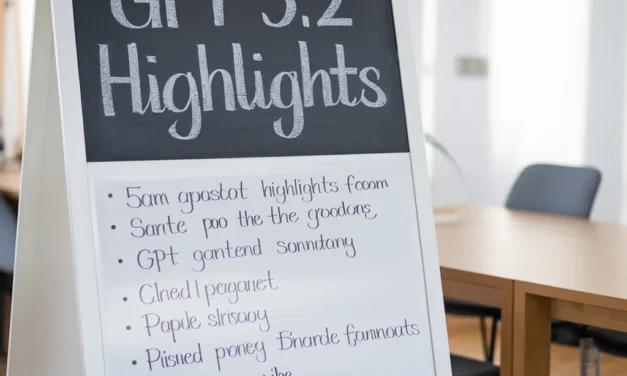 GPT 5.2
Highlights
• 5am apastot highlights foom
• Sante poo the the goodans
• GPT gantend sonndany
• Clned l paganet
• Papule slrisaoy
• Piisned poney Enarde famnoats